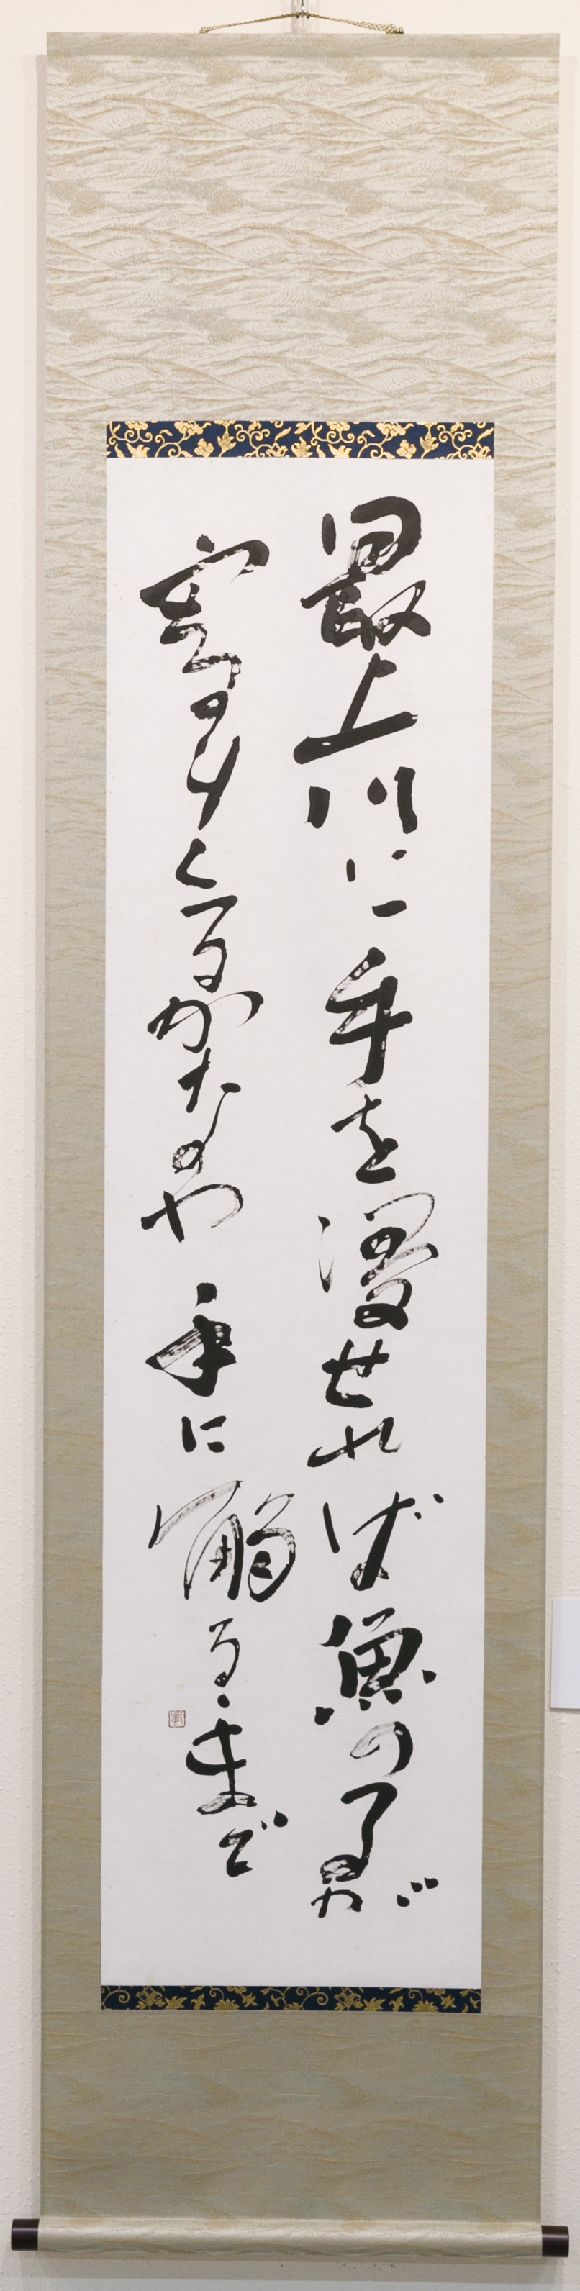 最上川に手を浸せれば魚の子が
寄りくるかなや手に觸るゝまで